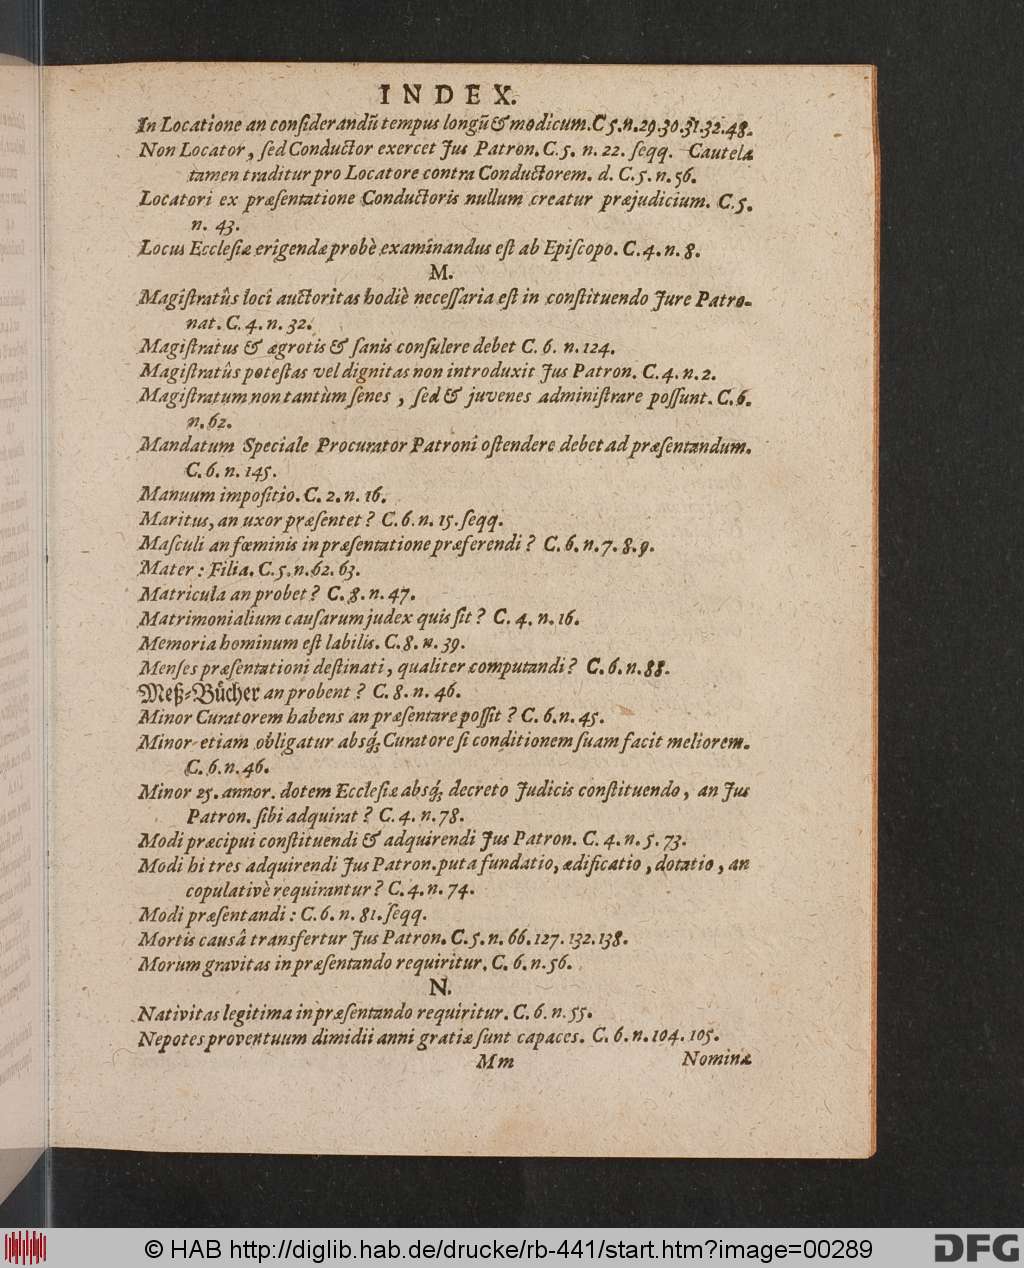 INDEX.
In Locatione an considerandū tempus longū & modicum. C 5. n. 29. 30. 31. 32. 48.
Non Locator, sed Conductor exercet Jus Patron. C. 5. n. 22. seqq. Cautela
tamen traditur pro Locatore contra Conductorem. d. C. 5. n. 56.
Locatori ex præsentatione Conductoris nullum creatur præjudicium. C. 5.
n. 43.
Locus Ecclesiæ erigendæ probè examinandus est ab Episcopo. C. 4. n. 8.
M.
Magistratûs loci auctoritas hodiè necessaria est in constituendo Jure Patro-
nat. C. 4. n. 32.
Magistratus & ægrotis & sanis consulere debet C. 6. n. 124.
Magistratûs potestas vel dignitas non introduxit Jus Patron. C. 4. n. 2.
Magistratum non tantùm senes, sed & juvenes administrare possunt. C. 6.
n. 62.
Mandatum Speciale Procurator Patroni ostendere debet ad præsentandum.
C. 6. n. 145.
Manuum impositio. C. 2. n. 16.
Maritus, an uxor præsentet? C. 6. n. 15. seqq.
Masculi an fœminis in præsentatione præferendi? C. 6. n. 7. 8. 9.
Mater: Filia. C. 5. n. 62. 63.
Matricula an probet? C. 8. n. 47.
Matrimonialium causarum judex quis sit? C. 4. n. 16.
Memoria hominum est labilis. C. 8. n. 39.
Menses præsentationi destinati, qualiter computandi? C. 6. n. 88.
Meß-Bücher an probent? C. 8. n. 46.
Minor Curatorem habens an præsentare possit? C. 6. n. 45.
Minor etiam obligatur absq; Curatore si conditionem suam facit meliorem.
C. 6. n. 46.
Minor 25. annor. dotem Ecclesiæ absq; decreto Judicis constituendo, an Jus
Patron. sibi adquirat? C. 4. n. 78.
Modi præcipui constituendi & adquirendi Jus Patron. C. 4. n. 5. 73.
Modi hi tres adquirendi Jus Patron. puta fundatio, ædificatio, dotatio, an
copulativè requirantur? C. 4. n. 74.
Modi præsentandi: C. 6. n. 81. seqq.
Mortis causâ transfertur Jus Patron. C. 5. n. 66. 127. 132. 138.
Morum gravitas in præsentando requiritur. C. 6. n. 56.
N.
Nativitas legitima in præsentando requiritur. C. 6. n. 55.
Nepotes proventuum dimidii anni gratiæ sunt capaces. C. 6. n. 104. 105.
Mm Nomina
© HAB http://diglib.hab.de/drucke/rb-441/start.htm?image=00289
DFG